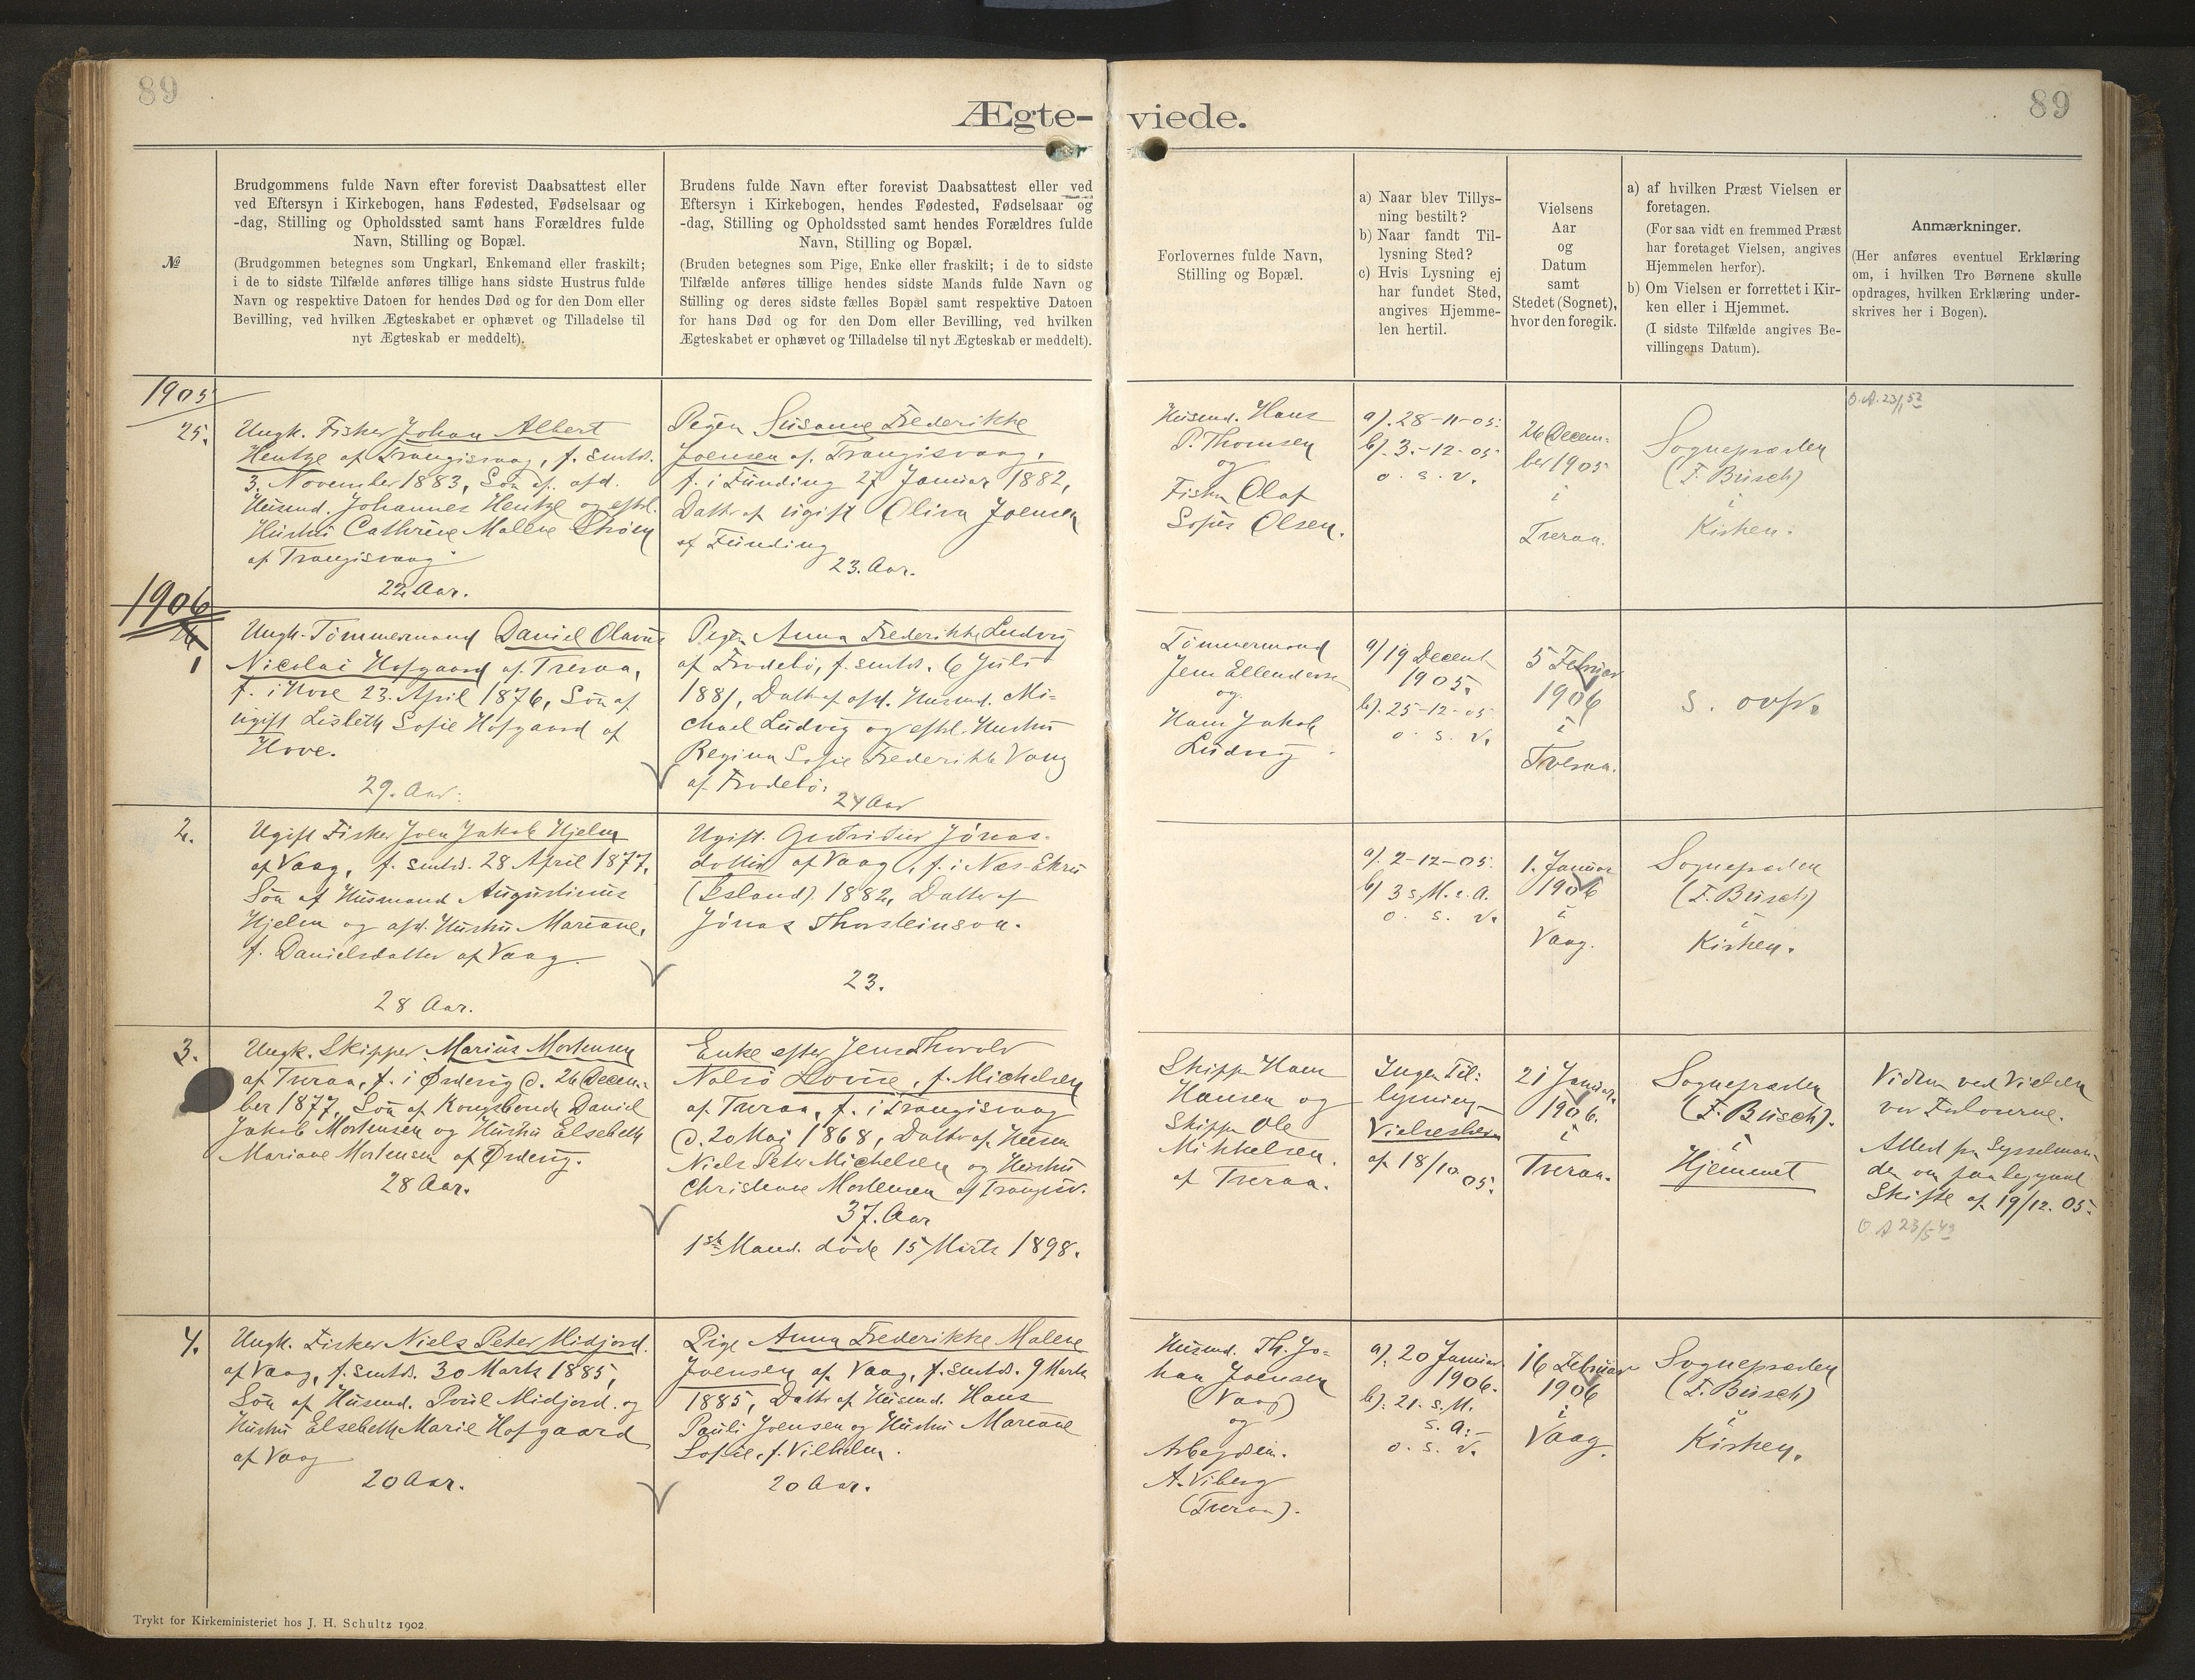 89
89
Ægte-
viede.
№
Brudgommens fulde Navn efter forevist Daabsattest eller
ved Eftersyn i Kirkebogen, hans Fødested, Fødselsaar og
-dag, Stilling og Opholdssted samt hans Forældres fulde
Navn, Stilling og Bopæl.
(Brudgommen betegnes som Ungkarl, Enkemand eller fraskilt;
i de to sidste Tilfælde anføres tillige hans sidste Hustrus fulde
Navn og respektive Datoen for hendes Død og for den Dom eller
Bevilling, ved hvilken Ægteskabet er ophævet og Tilladelse til
nyt Ægteskab er meddelt).
Brudens fulde Navn efter forevist Daabsattest eller ved
Eftersyn i Kirkebogen, hendes Fødested, Fødselsaar og
-dag, Stilling og Opholdssted samt hendes Forældres fulde
Navn, Stilling og Bopæl.
(Bruden betegnes som Pige, Enke eller fraskilt; i de to sidste
Tilfælde anføres tillige hendes sidste Mands fulde Navn og
Stilling og deres sidste fælles Bopæl samt respektive Datoen
for hans Død og for den Dom eller Bevilling, ved hvilken
Ægteskabet er ophævet og Tilladelse til nyt Ægteskab er meddelt).
Forlovernes fulde Navn,
Stilling og Bopæl.
a) Naar blev Tillys-
ning bestilt?
b) Naar fandt Til-
lysning Sted?
c) Hvis Lysning ej
har fundet Sted,
angives Hjemme-
len hertil.
Vielsens
Aar
og
Datum
samt
Stedet (Sognet),
hvor den foregik.
a) af hvilken Præst Vielsen er
foretagen.
(For saa vidt en fremmed Præst
har foretaget Vielsen, angives
Hjemmelen herfor).
b) Om Vielsen er forrettet i Kir-
ken eller i Hjemmet.
(I sidste Tilfælde angives Be-
villingens Datum).
Anmærkninger.
(Her anføres eventuel Erklæring
om, i hvilken Tro Børnene skulle
opdrages, hvilken Erklæring under-
skrives her i Bogen).
1905
25.
Ungk. Fisker Johan Albert
Hentze af Trangisvaag, f. smtds.
3. November 1883, Søn af afd.
Husmd. Johannes Hentze og eftel.
Hustru Cathrine Malene Strøm
af Trangisvaag
22 Aar.
Pigen Susanne Frederikke
Joensen af Trangisvaag,
f. i Funding 27 Januar 1882,
Datter af ugift Oliva Joensen
af Funding
23. Aar.
Husmd. Hans
P. Thomsen
og
Fisker Olaf
Sofus Olsen.
a). 28-11-05.
b). 3.-12-05
o. s. v.
26 Decem-
ber 1905
i
Tveraa.
Sognepræsten
(F. Busch)
i
Kirken.
O.A. 23/1 52
1906
1
Ungk. Tømmermand Daniel Olavus
Nicolai Hofgaard af Tveraa,
f. i Hove 23. April 1876, Søn af
ugift Lisbeth Sofie Hofgaard af
Hove.
29. Aar.
Pigen Anna Frederikke Ludvig
af Frodebø, f. smtds. 6 Juli
1881, Datter af afd. Husmd. Mi-
chael Ludvig og eftel. Hustru
Regina Sofie Frederikke Vang
af Frodebø.
24 Aar
Tømmermand
Jens Ellendersen
og
Hans Jakob
Ludvig
a) 19 Decemb.
1905.
b). 25-12-05
o. s. v.
5 Februar
1906
i
Tveraa.
s. ovfr.
2.
Ugift Fisker Joen Jakob Hjelm
af Vaag, f. smtds. 28 April 1877,
Søn af Husmand Augustinus
Hjelm og afd. Hustru Mariane,
f. Danielsdatter af Vaag.
28 Aar.
Ugift. Gudridur Jónas-
dottir af Vaag, f. i Nes-Ekru
(Island). 1882, Datter af
Jónas Thorsteinson.
23.
a). 2-12-05.
b) 3 s. M. s. A.
o. s. v.
1. Januar
1906
i
Vaag.
Sognepræsten
(F. Busch)
i
Kirken.
3.
Ungk. Skipper Marius Mortensen
af Tveraa, f. i Ørderig d. 26 Decem-
ber 1877, Søn af Kongsbonde Daniel
Jakob Mortensen og Hustru Elsebeth
Mariane Mortensen af Ørderig.
28 Aar.
Enke efter Jens Thorolv
Nolsø Lovise, f. Michelsen
af Tveraa, f. i Trangisvaag
d. 20 Maj 1868, Datter af Husm
Niels Peter Michelsen og Hustru
Christiane Mortensen af Trangisv.
37. Aar
1ste Mand døde 15 Marts 1898.
Skipper Hans
Hansen og
Skipper Ole
Mikkelsen.
af Tveraa.
Ingen Til-
lysning
Vielsesbrev
af 18/10 05.
21 Januar
1906.
i
Tveraa.
Sognepræsten
(F. Busch).
i
Hjemmet
Vidner ved Vielsen
var Forloverne.
Attest fra Sysselman-
den om paabegyndt
Skifte af 19/12. 05.
O A 23/5 49
4.
Ungk. Fisker Niels Peter Midjord.
af Vaag, f. smtds. 30 Marts 1885,
Søn af Husmd. Poul Midjord og
Hustru Elsebeth Marie Hofgaard
af Vaag
20 Aar.
Pige Anna Frederikke Malene
Joensen af Vaag, f. smtds. 9 Marts
1885, Datter af Husmd. Hans
Pauli Joensen og Hustru Mariane
Sofie, f. Vilhelm.
20 Aar.
Husmd. Th. Jo-
han Joensen
(Vaag)
og
Arbejdsm.
A. Viberg
(Tveraa).
a). 20 Januar
1906.
b). 21. s. M.
s. A.
o. s. v.
16 Februar
1906
i
Vaag.
Sognepræsten
(F. Busch)
i
Kirken.
Trykt for Kirkeministeriet hos J. H. Schultz 1902.